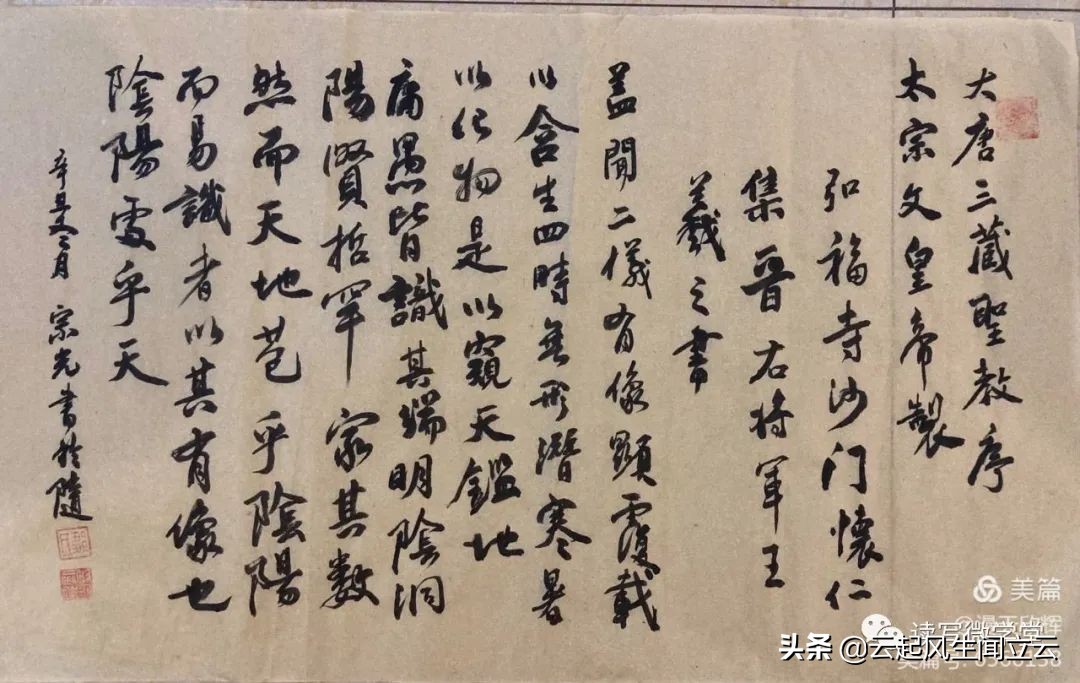 大唐三藏聖教序
太宗文皇帝製
弘福寺沙门懷仁
集晋右将軍王
羲之書
盖聞二儀有像顯覆載
以含生四時無形潛寒暑
以化物是以窺天鑑地
庸愚皆識其端明陰洞
陽賢哲罕家其数
然而天地苞乎陰陽
而易識者以其有像也
陰陽處乎天
辛丑二月 宗光書於隨
美篇
读写微学堂
头条 @云起风生闻立云